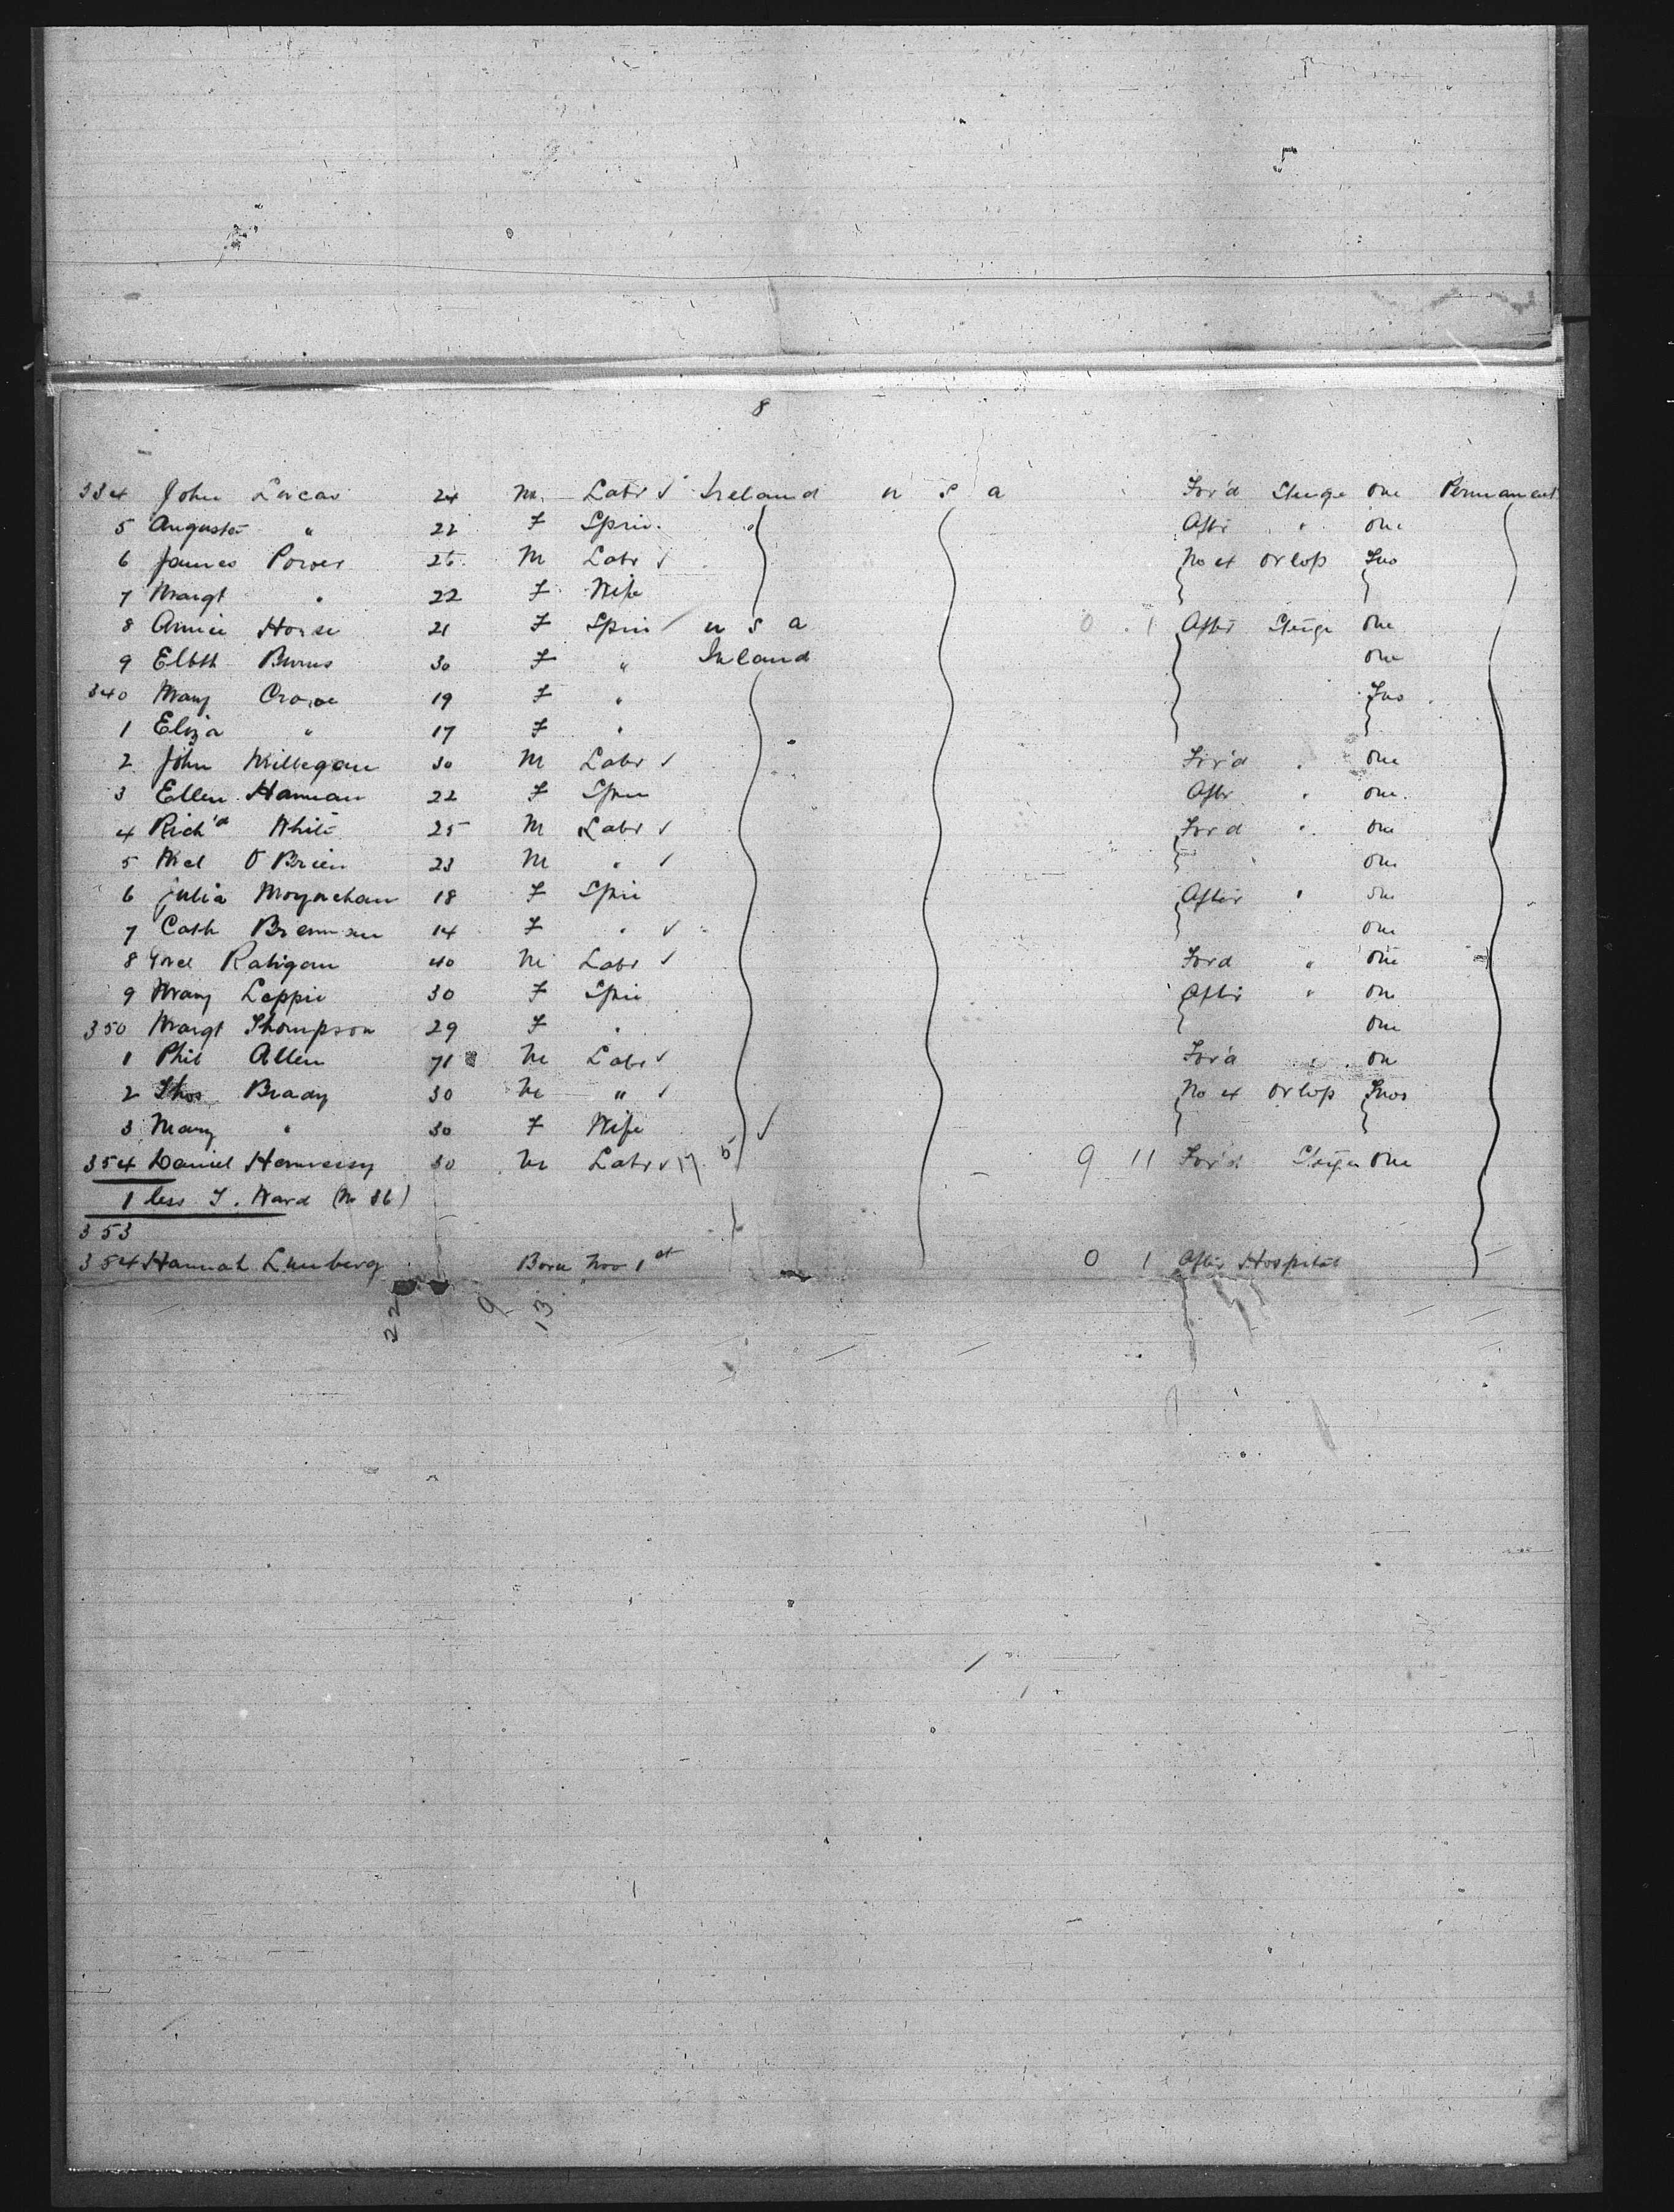 5
8
334 John Lucas 24 M. Labr ✓ Ireland u s a For'd Steige one Permanent
5 Augusta " 22 F Spin. Aftr " one
6 James Power 25 M Labr ✓ No 4 Orlop Two
7 Margt " 22 F Wife
8 Annie Horse 21 F Spin u s a 0 1 After Steige One
9 Elbth Burns 30 F " Ireland one
340 Mary Crowe 19 F " Two
1 Eliza " 17 F "
2 John Millegan 30 M Labr ✓ For'd " one
3 Ellen Hannan 22 F Spin Aftr " one
4 Rich'd White 25 M Labr ✓ Ford " one
5 Mcl O Brien 23 M " ✓ one
6 Julia Moynehan 18 F Spin After " one
7 Cath Brennan 14 F " ✓ one
8 Mcl Ratigan 40 M Labr ✓ Ford " one
9 Mary Leppie 30 F Spin After " one
350 Margt Thompson 29 F " one
1 Phil Allen 71 M Labr ✓ For'd " on
2 Thos Brady 30 M " ✓ No 4 Orlop Two
3 Mary " 30 F Wife ✓
354 Daniel Hennessy 30 M Labr ✓ 17 5 9 11 For'd Steige One
1 less T. Ward (No 86)
353
354 Hannah Lunberg Born Nov 1st 0 1 After Hospital
22 9 13